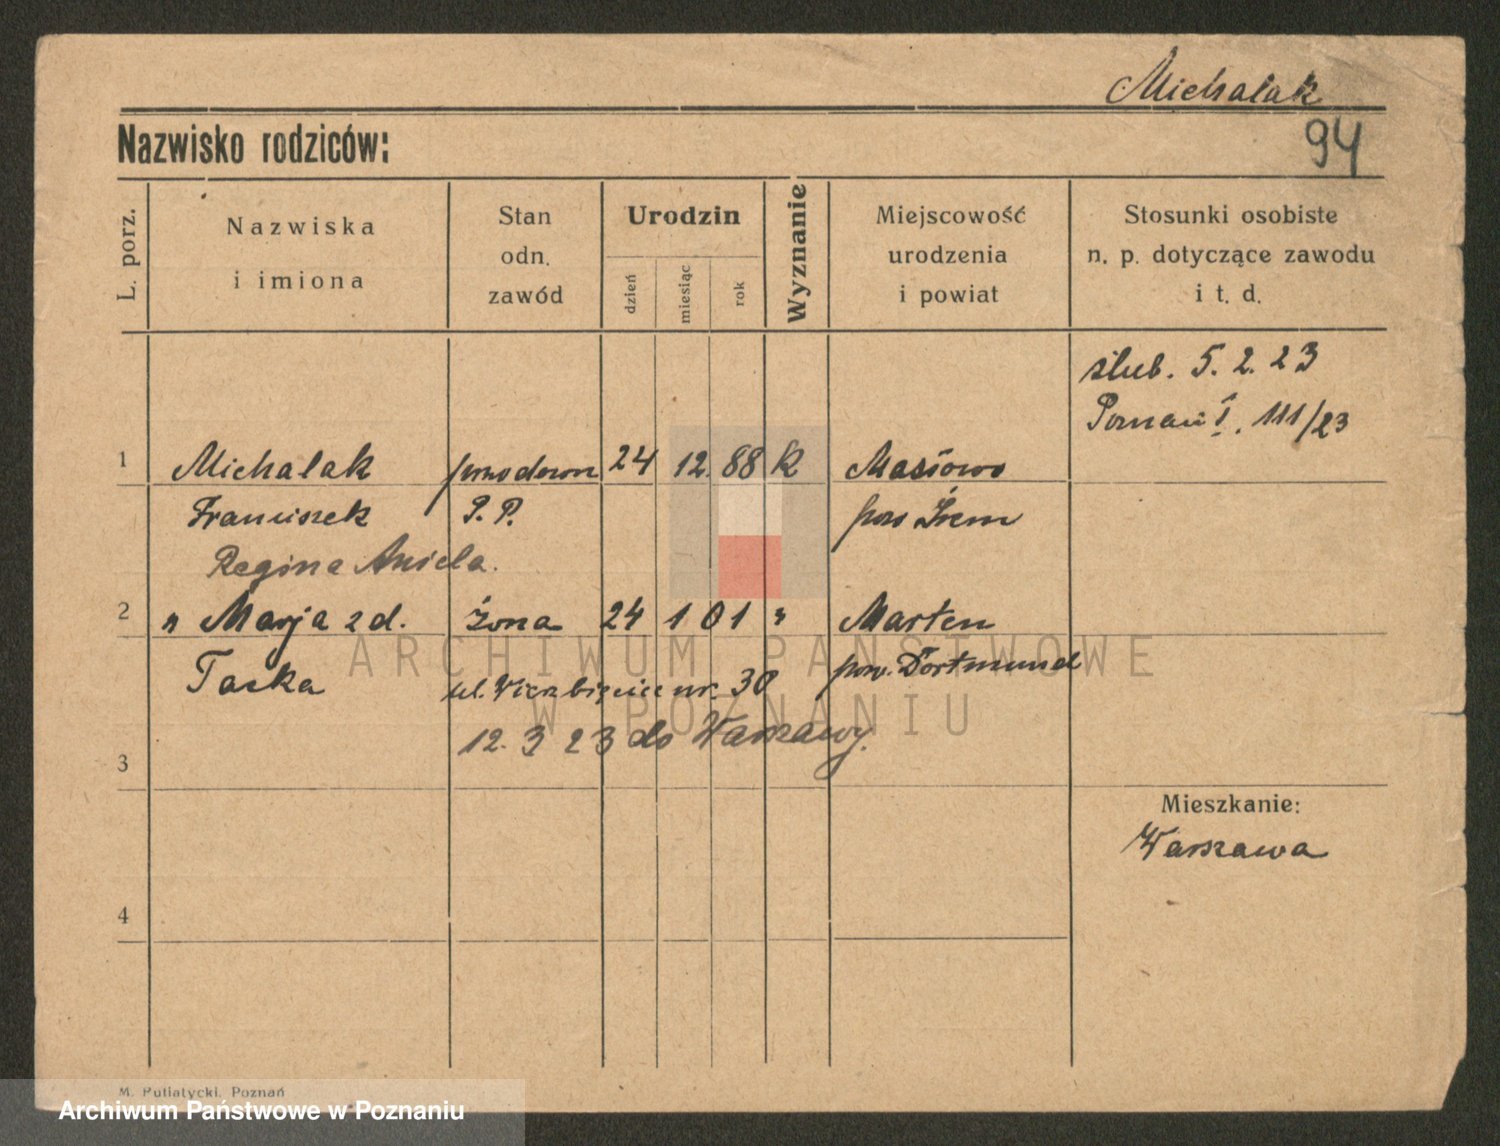 Michalak
94
Nazwisko rodziców:
L. porz.
Nazwiska
i imiona
Stan
odn.
zawód
Urodzin
dzień
miesiąc
rok
Wyznanie
Miejscowość
urodzenia
i powiat
Stosunki osobiste
n. p. dotyczące zawodu
i t. d.
ślub. 5. 2. 23
Poznań I. 111/23
1 Michalak 24 12. 88 K Masłowo
Franciszek P. P. pow Śrem
Regina Aniela.
2 " Marja z d. żona 24 1 01 " Marten
Taska pow. Dortmund
ul. Wierzbięcice nr. 30
12. 3 23 do Warszawy.
3
Mieszkanie:
Warszawa
4
M. Putiatycki, Poznań
ARCHIWUM PAŃSTWOWE
W POZNANIU
Archiwum Państwowe w Poznaniu